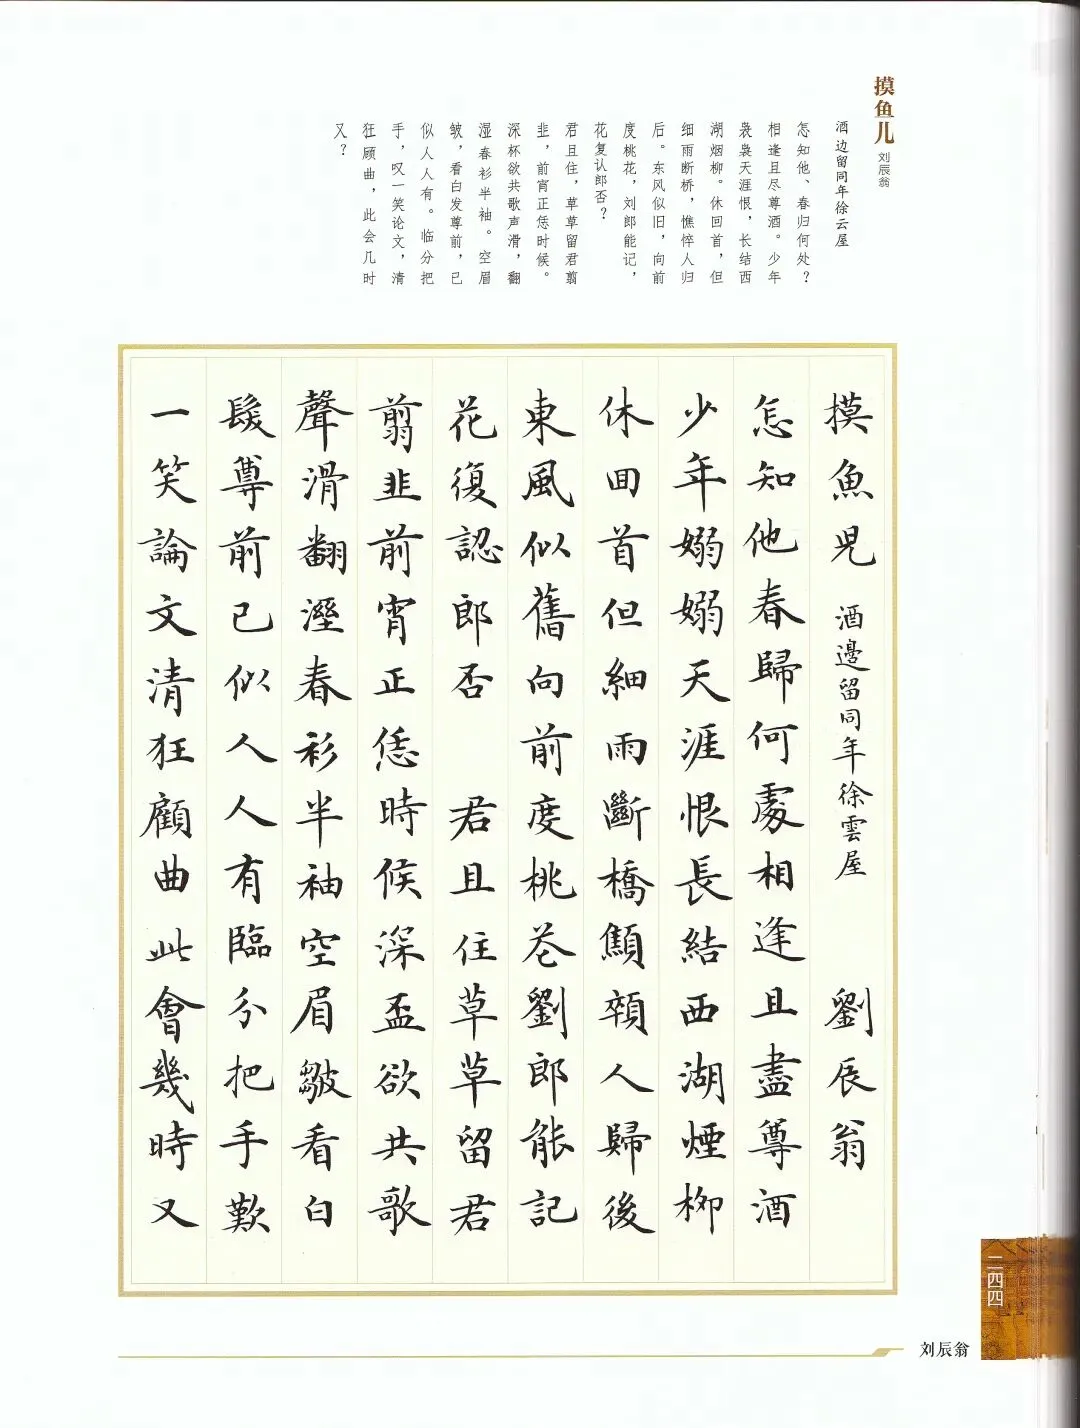 摸鱼儿 刘辰翁
酒边留同年徐云屋
怎知他、春归何处？
相逢且尽尊酒。少年
袅袅天涯恨，长结西
湖烟柳。休回首，但
细雨断桥，憔悴人归
后。东风似旧，向前
度桃花，刘郎能记，
花复认郎否？
君且住，草草留君翦
韭，前宵正恁时候。
深杯欲共歌声滑，翻
湿春衫半袖。空眉
皱，看白发尊前，已
似人人有。临分把
手，叹一笑论文，清
狂顾曲，此会几时
又？
摸魚兒 酒邊留同年徐雲屋 劉辰翁
怎知他春歸何處相逢且盡尊酒
少年嫋嫋天涯恨長結西湖煙柳
休回首但細雨斷橋顦顇人歸後
東風似舊向前度桃花劉郎能記
花復認郎否 君且住草草留君
翦韭前宵正恁時候深盃欲共歌
聲滑翻溼春衫半袖空眉皺看白
髮尊前已似人人有臨分把手歎
一笑論文清狂顧曲此會幾時又
二四四
刘辰翁